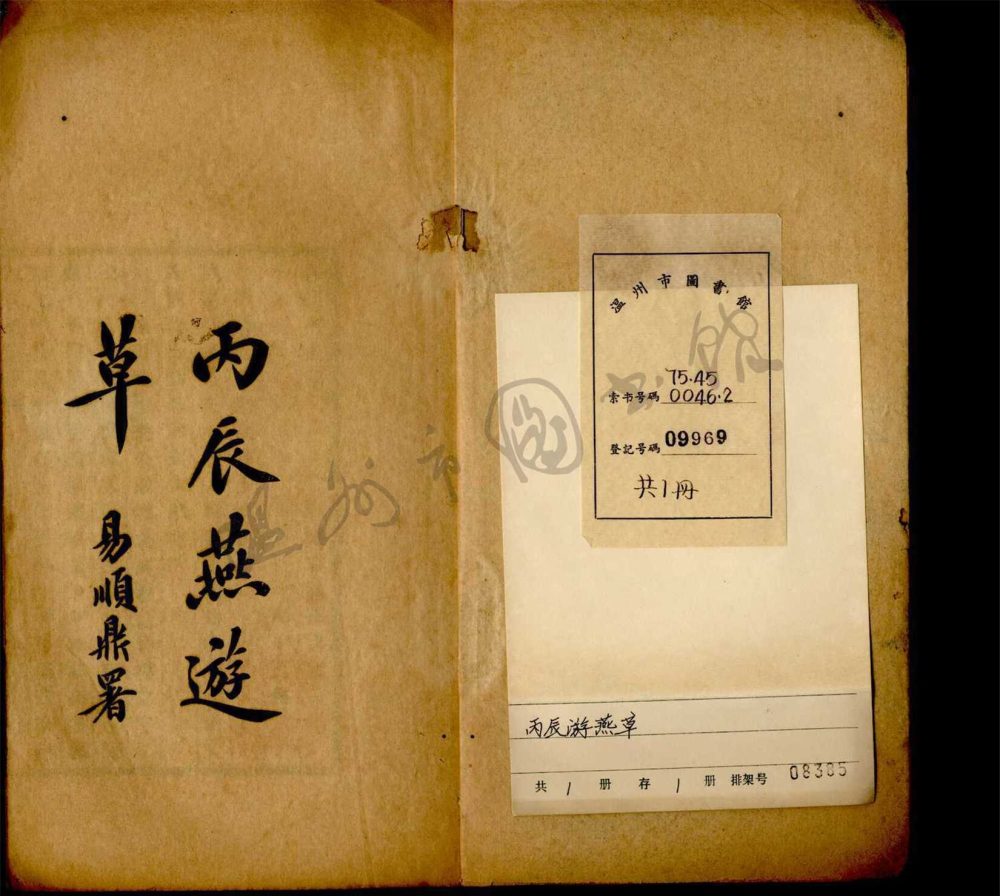 丙辰燕遊
草
易順鼎署
温州市圖書館
75.45
索书号碼 0046.2
登記号碼 09969
共1冊
丙辰游燕草
共 1 册 存 1 册 排架号 08385
温州市圖书館